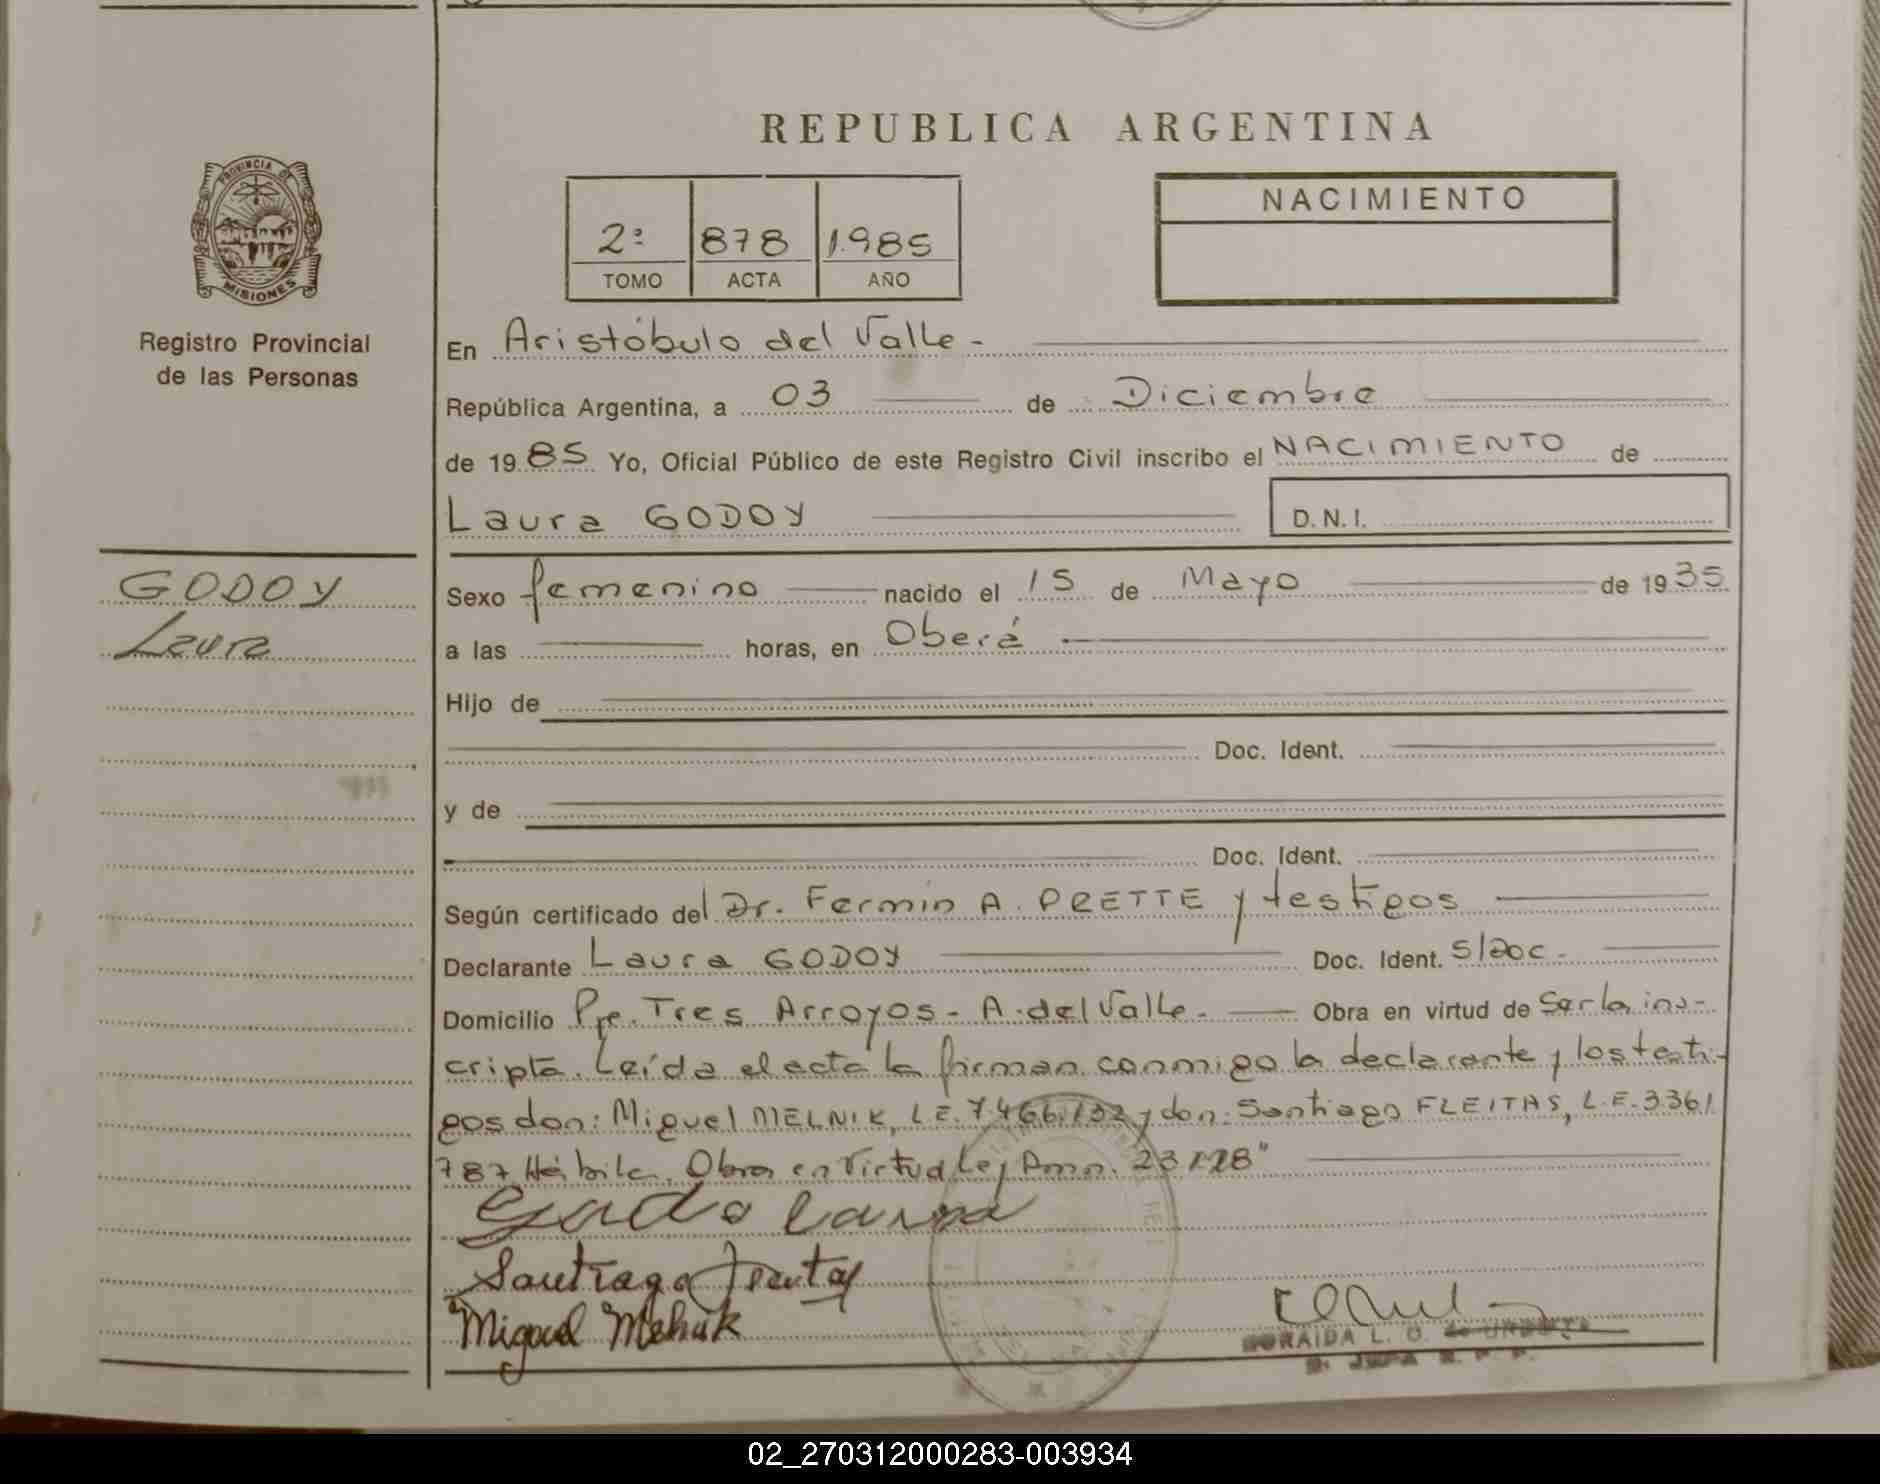 REPUBLICA ARGENTINA
PROVINCIA DE
MISIONES
Registro Provincial
de las Personas
2º 878 1.985
TOMO ACTA AÑO
NACIMIENTO
En Aristóbulo del Valle -
República Argentina, a 03 de Diciembre
de 1985 Yo, Oficial Público de este Registro Civil inscribo el NACIMIENTO de
Laura GODOY D.N.I.
GODOY
Laura
Sexo femenino nacido el 15 de Mayo de 1935
a las horas, en Oberá
Hijo de
Doc. Ident.
y de
Doc. Ident.
Según certificado del Dr. Fermin A. PRETTE y testigos
Declarante Laura GODOY Doc. Ident. S/Doc -
Domicilio Pje. Tres Arroyos - A. del Valle - Obra en virtud de Ser la ins-
cripta. Leída el acta la firman conmigo la declarante y los testi-
gos don: Miguel MELNIK, L.E. 7.466.132 y don: Santiago FLEITAS, L.E. 3361
787 Hábiles. Obra en Virtud Ley 23128"
Godo Laura
Santiago
Miguel Melnik
L. G. de
02_270312000283-003934